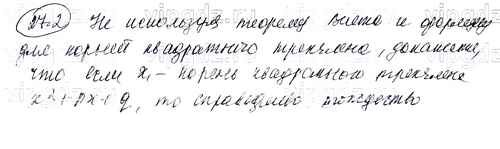 17.2 Не используя теорему Виета и формулу
для корней квадратного трехчлена, докажите,
что если x₁ - корень квадратного трехчлена
x²+px+q, то справедливо тождество